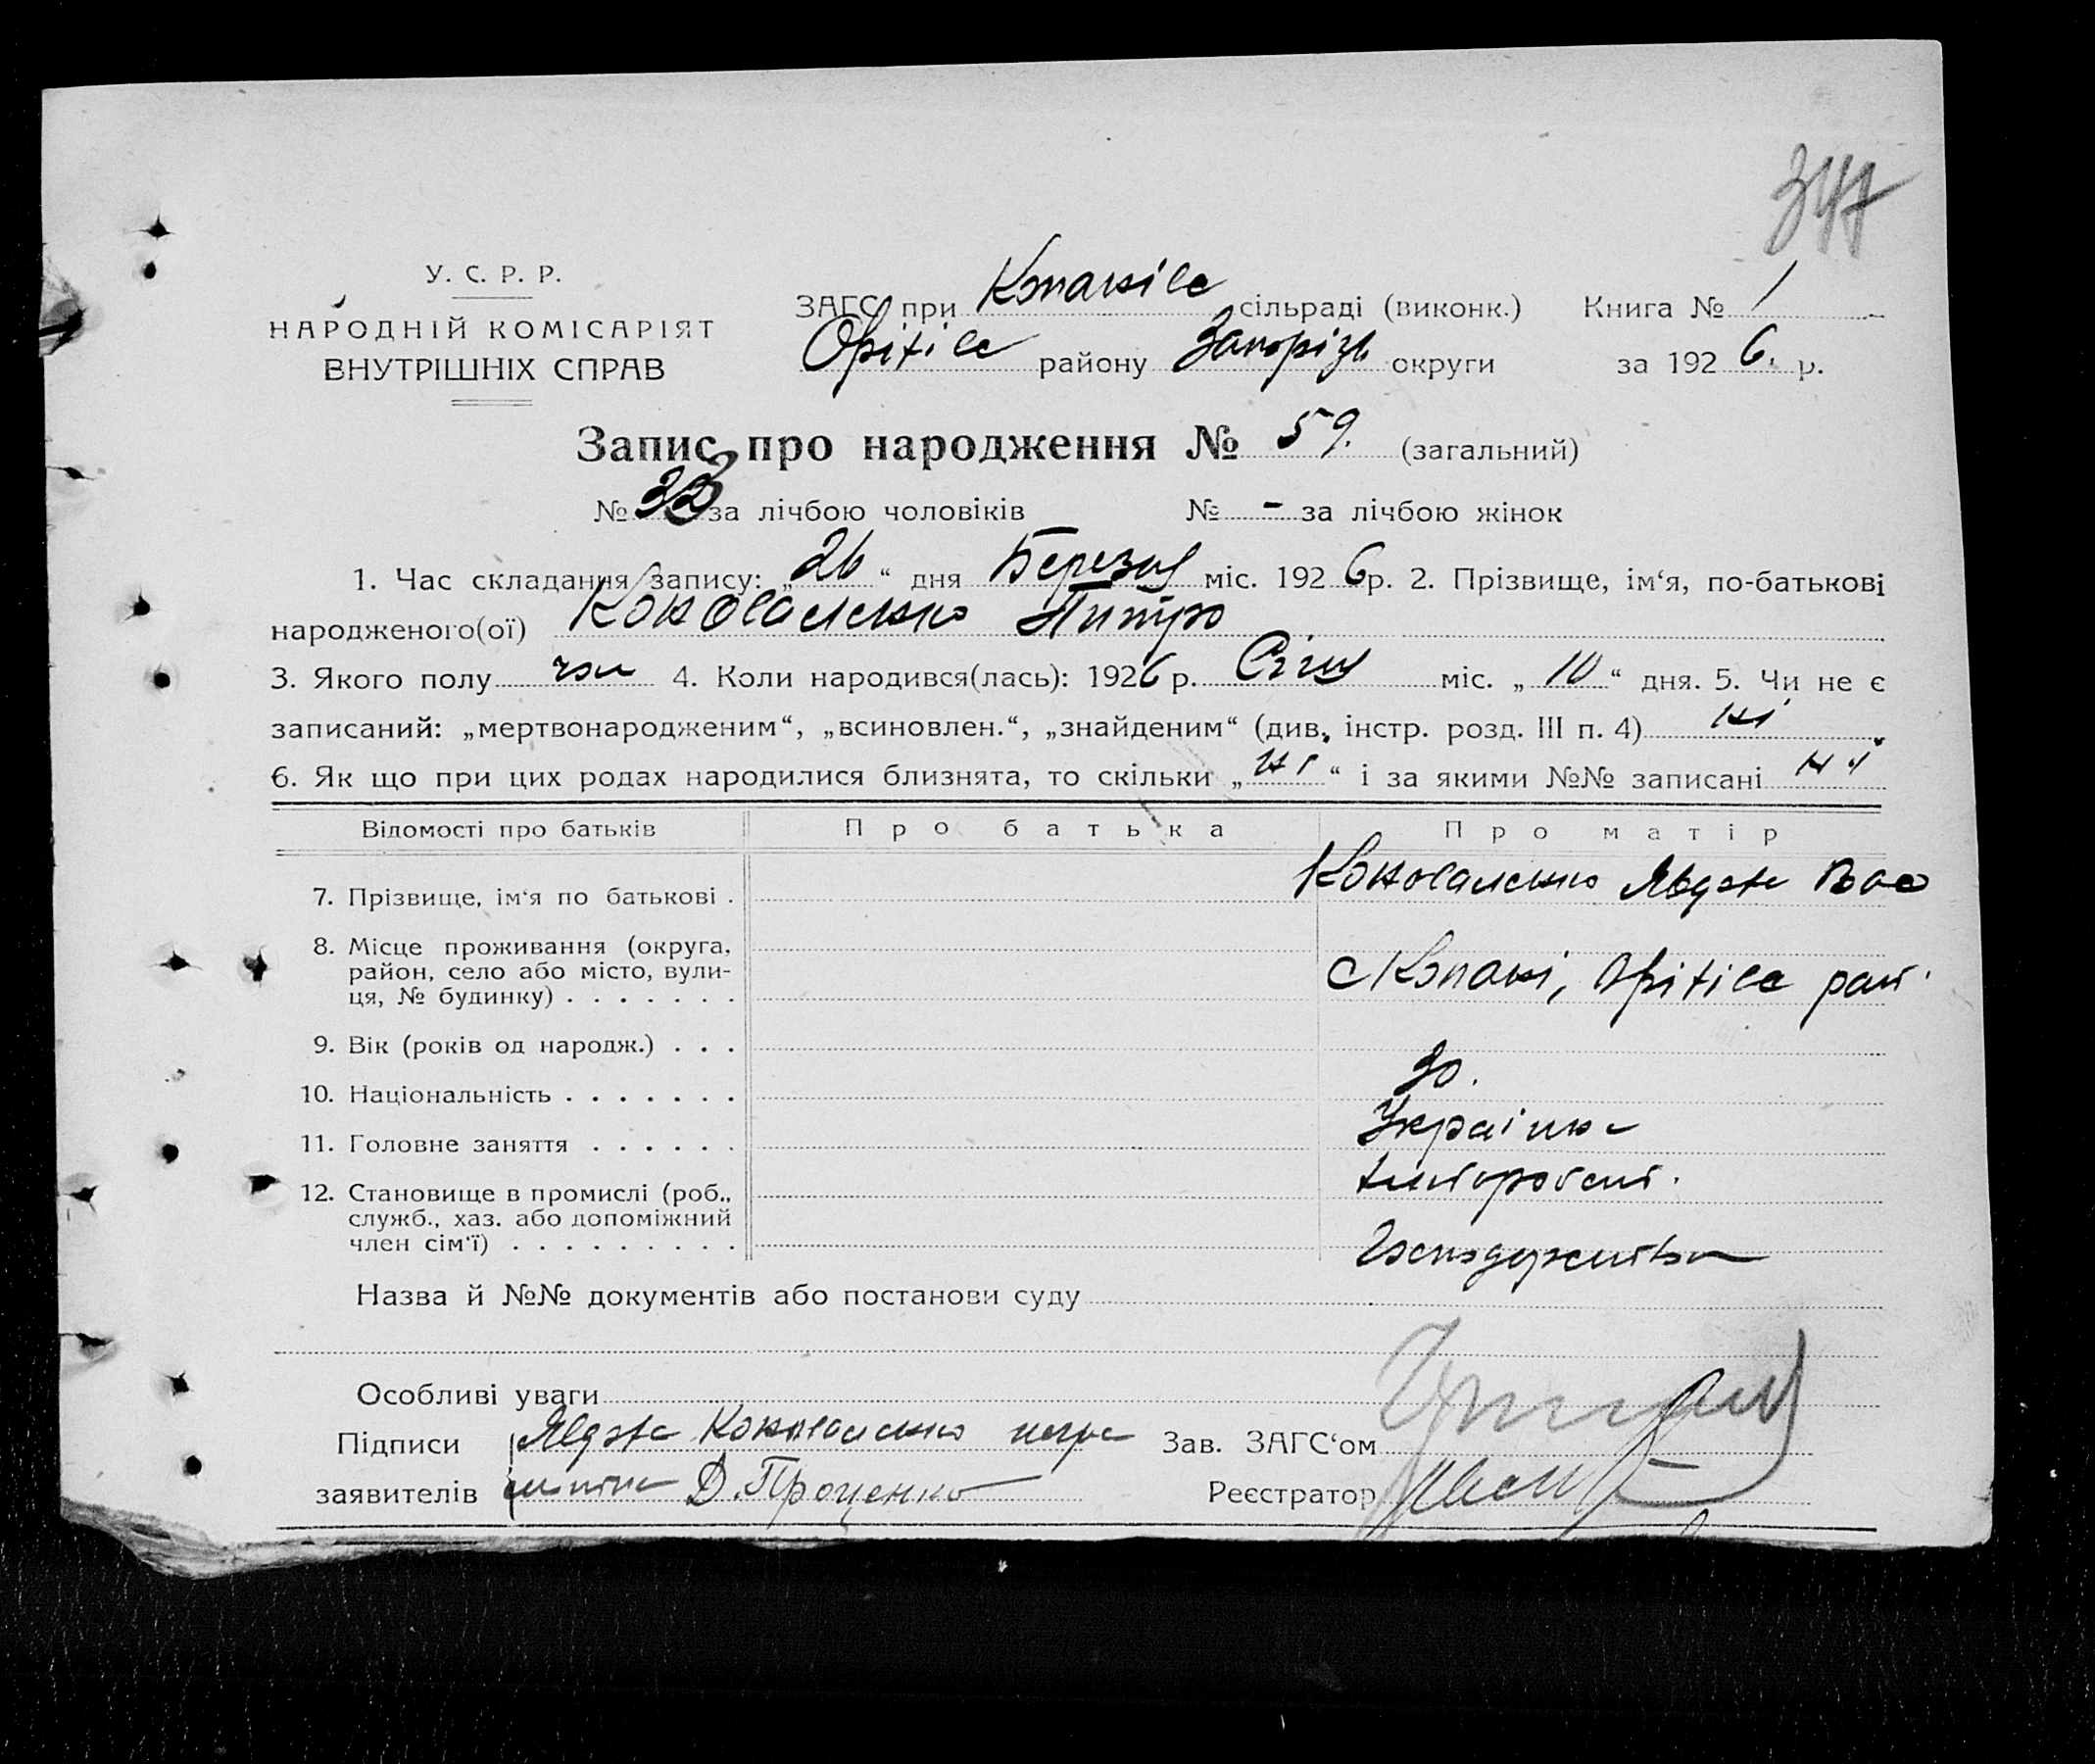 347
У. С. Р. Р.
НАРОДНІЙ КОМІСАРІЯТ
ВНУТРІШНІХ СПРАВ
ЗАГС при Копанівс сільраді (виконк.) Книга № 1
Оріхівс району Запорізь округи за 1926. р.
Запис про народження № 59. (загальний)
№ за лічбою чоловіків № - за лічбою жінок
1. Час складання запису: „26“ дня Березня міс. 1926 р. 2. Прізвище, ім‘я, по-батькові
народженого(ої) Коноваленко Питро
3. Якого полу чол 4. Коли народився(лась): 1926 р. Січня міс. „10“ дня. 5. Чи не є
записаний: „мертвонародженим“, „всиновлен.“, „знайденим“ (див. інстр. розд. III п. 4) ні
6. Як що при цих родах народилися близнята, то скільки „ні“ і за якими №№ записані ні
Відомості про батьків Про батька Про матір
7. Прізвище, ім‘я по батькові . Коноваленко Явдоха Вас
8. Місце проживання (округа,
район, село або місто, вули-
ця, № будинку) . . . . . . . с Копані, Оріхівс рай
9. Вік (років од народж.) . . .
10. Національність . . . . . . . Українка
11. Головне заняття . . . . . . хлібороб
12. Становище в промислі (роб.,
служб., хаз. або допоміжний
член сім‘ї) . . . . . . . . .
Назва й №№ документів або постанови суду
Особливі уваги
Підписи Явдоха Коноваленко Зав. ЗАГС‘ом
заявителів Д. Проценко Реєстратор